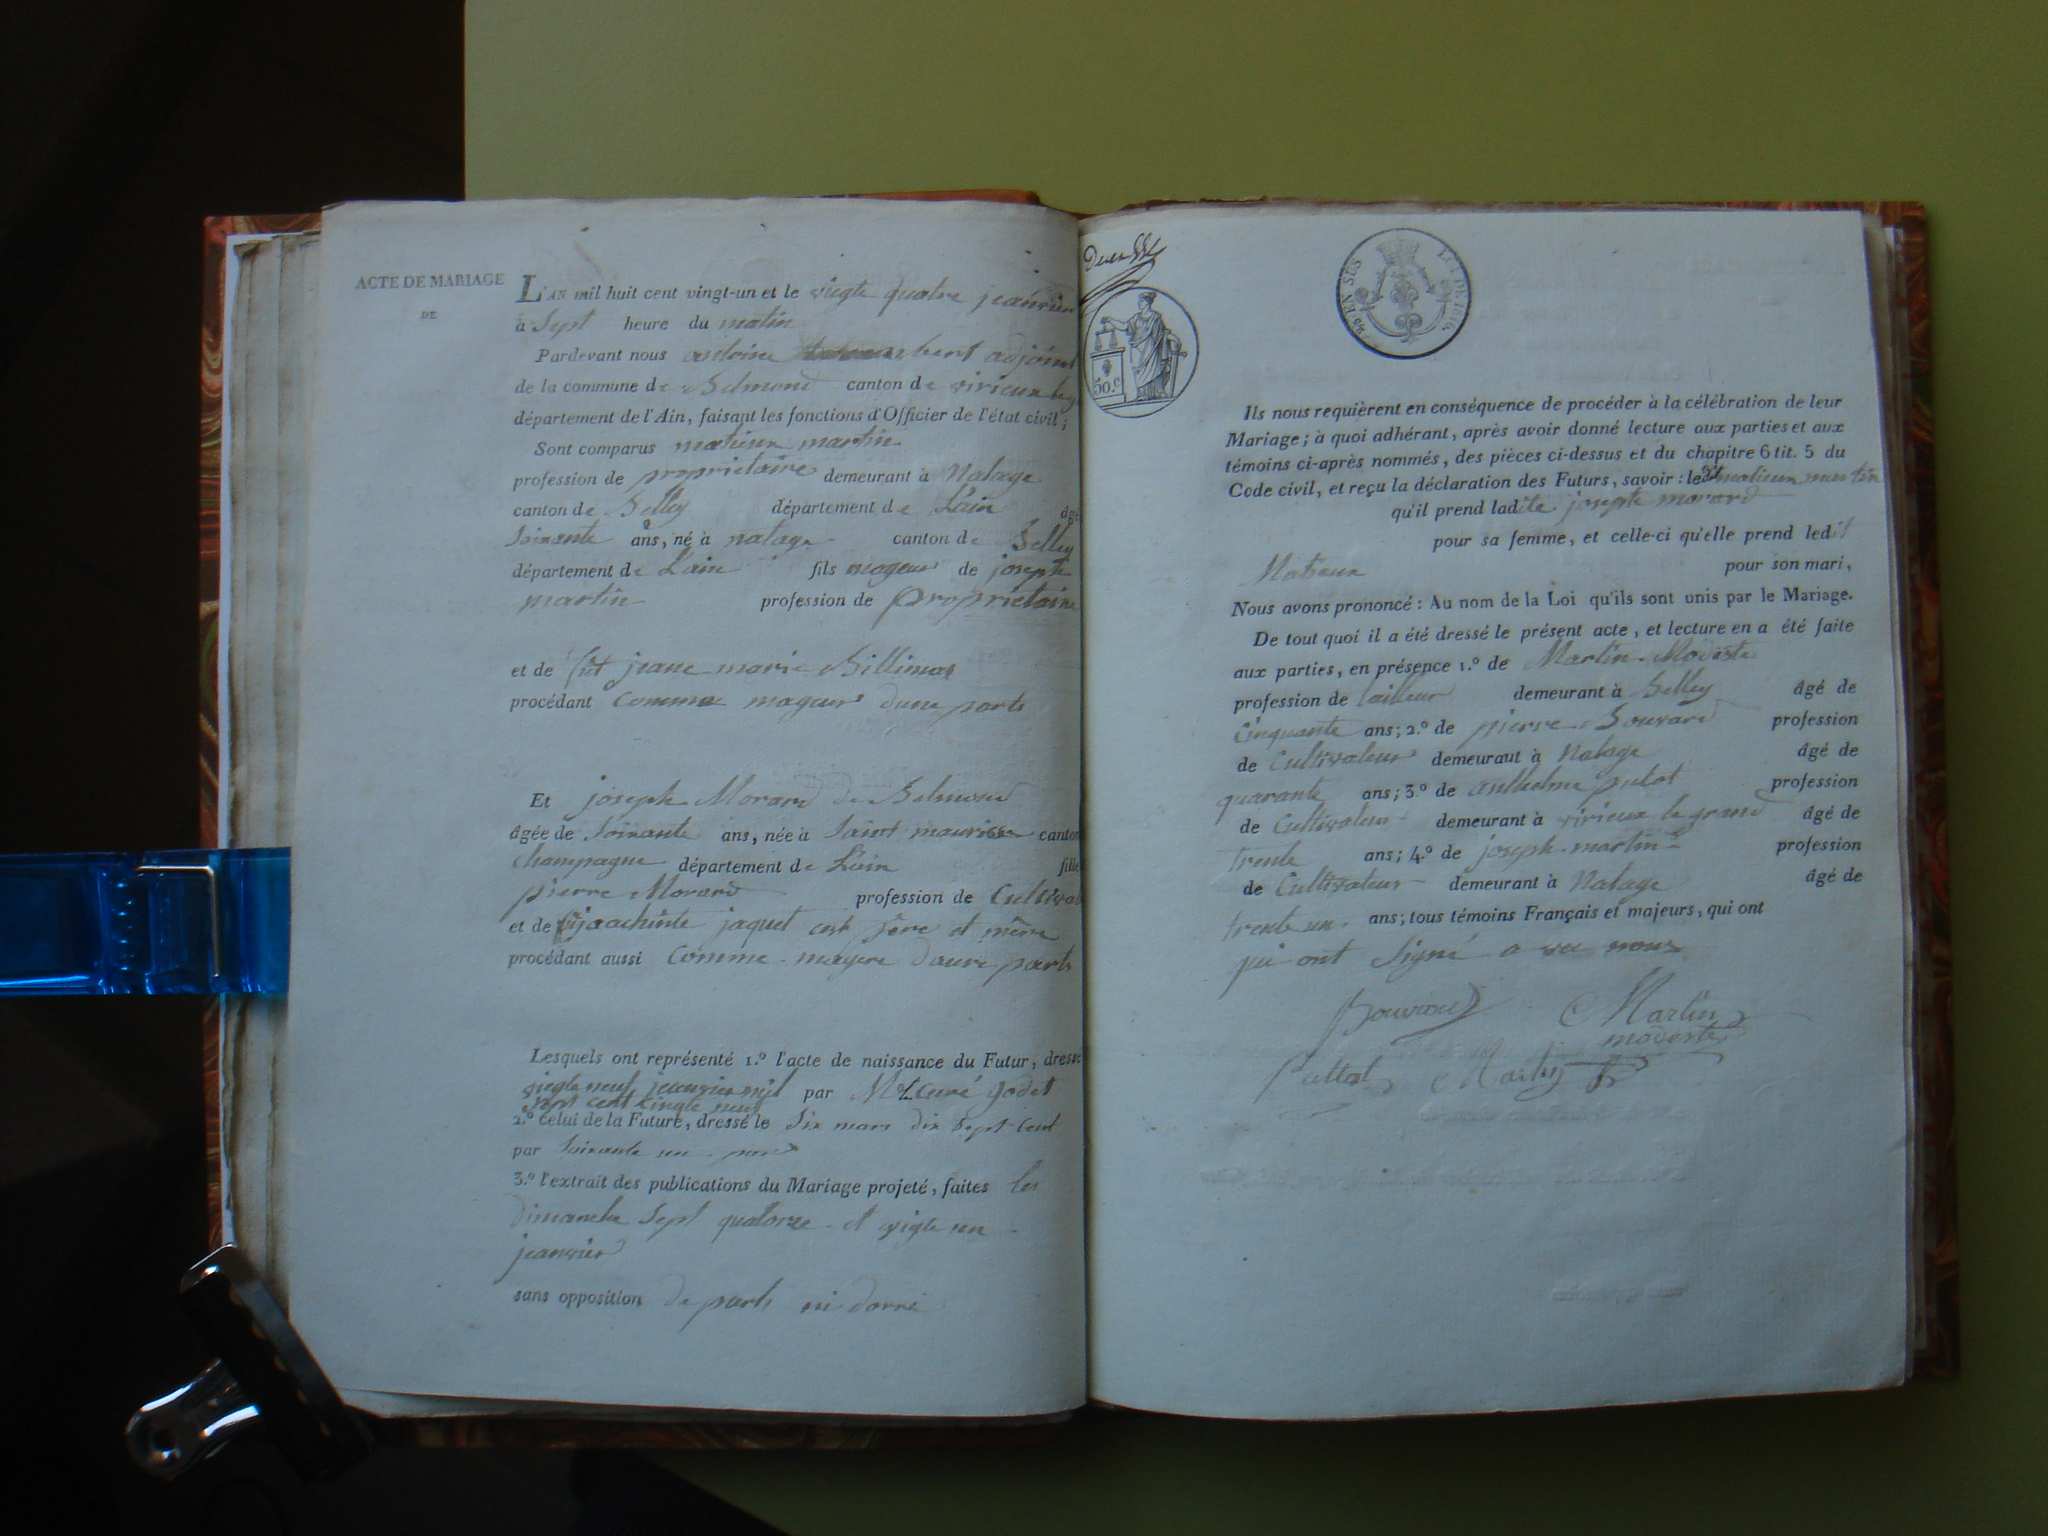 ACTE DE MARIAGE
DE
L'AN mil huit cent vingt-un et le vingte quatre jeanvier
à Sept heure du matin
Pardevant nous antoine adjoint
de la commune de Belmond canton de virieux
département de l'Ain, faisant les fonctions d'Officier de l'état civil;
Sont comparus matieux martin
profession de proprietaire demeurant à Natage
canton de Belley département de L'ain âgé
Soixante ans, né à natage canton de Belley
département de L'ain fils mageur de joseph
martin profession de proprietaire
et de fût jeane marie Billimas
procédant comme mageur dune parts
Et joseph Morard de Belmond
âgée de Soixante ans, née à Saint maurice canton
champagne département de L'ain fille
pierre Morard profession de Cultivat
et de jaachinte jaquet père et mère
procédant aussi Comme mayere daure parts
Lesquels ont représenté 1.º l'acte de naissance du Futur, dressé
vingte neuf jeanvier mil par Mr curé godet
sept cent cinqte neuf
2.º celui de la Future, dressé le Six mars dix Sept Cent
par Soixante un
3.º l'extrait des publications du Mariage projeté, faites les
dimanche Sept quatorze et vigte un
jeanvier
sans opposition de parts ni dorré
50.c
Ils nous requièrent en conséquence de procéder à la célébration de leur
Mariage; à quoi adhérant, après avoir donné lecture aux parties et aux
témoins ci-après nommés, des pièces ci-dessus et du chapitre 6 tit. 5 du
Code civil, et reçu la déclaration des Futurs, savoir: le dt matieux martin
qu'il prend ladite josepte morard
pour sa femme, et celle-ci qu'elle prend ledit
Matieux pour son mari,
Nous avons prononcé: Au nom de la Loi qu'ils sont unis par le Mariage.
De tout quoi il a été dressé le présent acte, et lecture en a été faite
aux parties, en présence 1.º de Martin Modeste
profession de tailleur demeurant à Belley âgé de
Cinquante ans; 2.º de pierre Bouvard profession
de Cultivateur demeurant à Natage âgé de
quarante ans; 3.º de anthelme putot profession
de Cultivateur demeurant à virieux le grand âgé de
trente ans; 4.º de joseph martin profession
de Cultivateur demeurant à Natage âgé de
trente un ans; tous témoins Français et majeurs, qui ont
qui ont signé a vec nous
Bouvard Martin
modeste
Puttot Martin